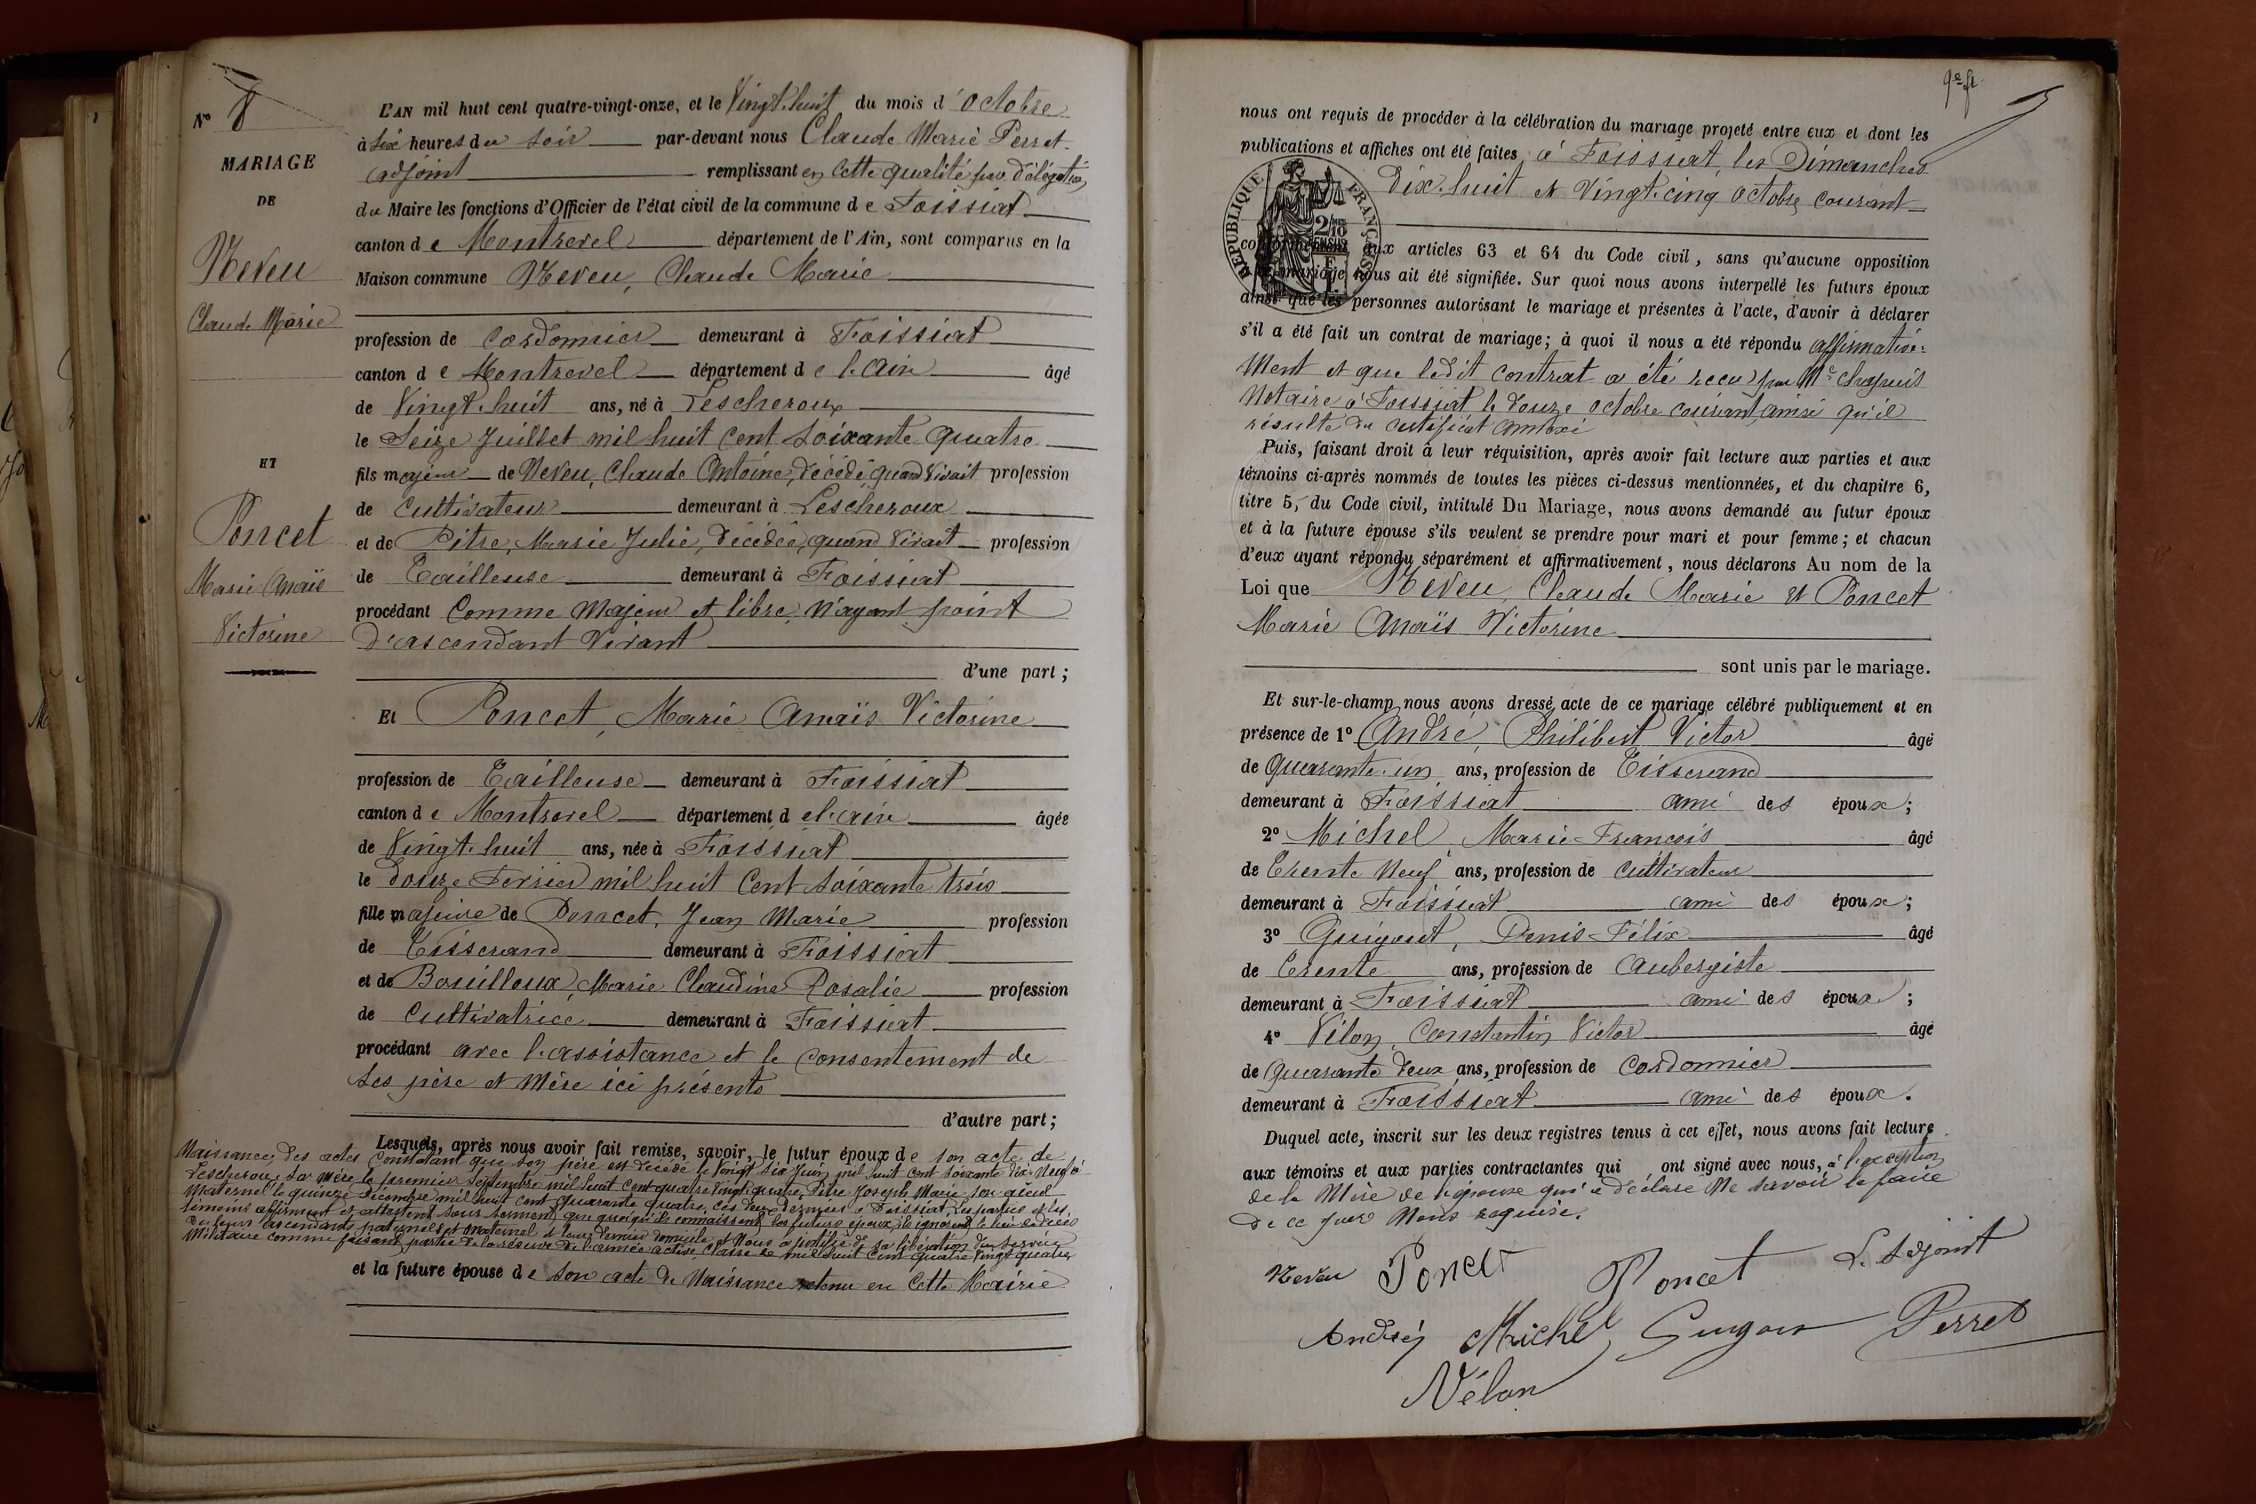 N° 8
MARIAGE
DE
Neveu
Claude Marie
ET
Poncet
Marie Anaïs
Victorine
L'AN mil huit cent quatre-vingt-onze, et le Vingt-huit du mois d'Octobre
à Six heures du soir par-devant nous Claude Marie Perret
adjoint remplissant en cette qualité par délégation
du Maire les fonctions d'Officier de l'état civil de la commune de Foissiat
canton de Montrevel département de l'Ain, sont comparus en la
Maison commune Neveu, Claude Marie
profession de Cordonnier demeurant à Foissiat
canton de Montrevel département de l'Ain âgé
de Vingt-huit ans, né à Lescheroux
le Seize Juillet mil huit cent soixante quatre
fils majeur de Neveu, Claude Antoine, décédé quand vivait profession
de Cultivateur demeurant à Lescheroux
et de Pitre, Marie Julie, décédée, quand vivait profession
de Tailleuse demeurant à Foissiat
procédant comme majeur et libre, n'ayant point
d'ascendant vivant
d'une part ;
Et Poncet, Marie Anaïs Victorine
profession de Tailleuse demeurant à Foissiat
canton de Montrevel département de l'Ain âgée
de Vingt-huit ans, née à Foissiat
le douze Février mil huit cent soixante trois
fille majeure de Poncet, Jean Marie profession
de Tisserand demeurant à Foissiat
et de Bouilloux, Marie Claudine Rosalie profession
de Cultivatrice demeurant à Foissiat
procédant avec l'assistance et le consentement de
ses père et mère ici présents
d'autre part ;
Lesquels, après nous avoir fait remise, savoir, le futur époux de son acte de
Naissance, des actes constatant que son père est décédé le vingt six Juin mil huit cent soixante dix-neuf à
Lescheroux, sa mère le premier Septembre mil huit cent quatre vingt quatre, Pitre Joseph Marie son aïeul
maternel le quinze décembre mil huit cent quarante quatre, ces deux derniers à Foissiat, les parties et les
témoins affirment et attestent sous serment que quoiqu'ils connaissent les futurs époux, ils ignorent le lieu du décès
de leurs ascendants paternels et maternel et leur dernier domicile et nous a justifié de sa libération du service
Militaire comme faisant partie de la réserve de l'armée active, classe de mil huit cent quatre vingt quatre
et la future épouse de son acte de Naissance retenu en cette Mairie
nous ont requis de procéder à la célébration du mariage projeté entre eux et dont les
publications et affiches ont été faites, à Foissiat, les Dimanches
dix-huit et vingt-cinq Octobre courant
RÉPUBLIQUE FRANÇAISE
conformément aux articles 63 et 64 du Code civil, sans qu'aucune opposition
mariage nous ait été signifiée. Sur quoi nous avons interpellé les futurs époux
ainsi que les personnes autorisant le mariage et présentes à l'acte, d'avoir à déclarer
s'il a été fait un contrat de mariage; à quoi il nous a été répondu affirmative-
ment et que ledit contrat a été reçu par Me Chapuis
Notaire à Foissiat le douze octobre courant, ainsi qu'il
résulte du certificat annexé
Puis, faisant droit à leur réquisition, après avoir fait lecture aux parties et aux
témoins ci-après nommés de toutes les pièces ci-dessus mentionnées, et du chapitre 6,
titre 5, du Code civil, intitulé Du Mariage, nous avons demandé au futur époux
et à la future épouse s'ils veulent se prendre pour mari et pour femme; et chacun
d'eux ayant répondu séparément et affirmativement, nous déclarons Au nom de la
Loi que Neveu, Claude Marie et Poncet
Marie Anaïs Victorine
sont unis par le mariage.
Et sur-le-champ nous avons dressé acte de ce mariage célébré publiquement et en
présence de 1° André, Philibert Victor âgé
de Quarante-un ans, profession de Tisserand
demeurant à Foissiat ami des époux ;
2° Michel, Marie-François âgé
de Trente Neuf ans, profession de Cultivateur
demeurant à Foissiat ami des époux ;
3° Guigout, Denis-Félix âgé
de Trente ans, profession de Aubergiste
demeurant à Foissiat ami des époux ;
4° Vélon, Constantin Victor âgé
de Quarante deux ans, profession de Cordonnier
demeurant à Foissiat ami des époux.
Duquel acte, inscrit sur les deux registres tenus à cet effet, nous avons fait lecture
aux témoins et aux parties contractantes qui ont signé avec nous, à l'exception
de la Mère de l'épouse qui a déclaré ne savoir le faire
de ce par Nous requise.
Neveu Poncet Poncet L'adjoint
André Michel Guigout Perret
Vélon